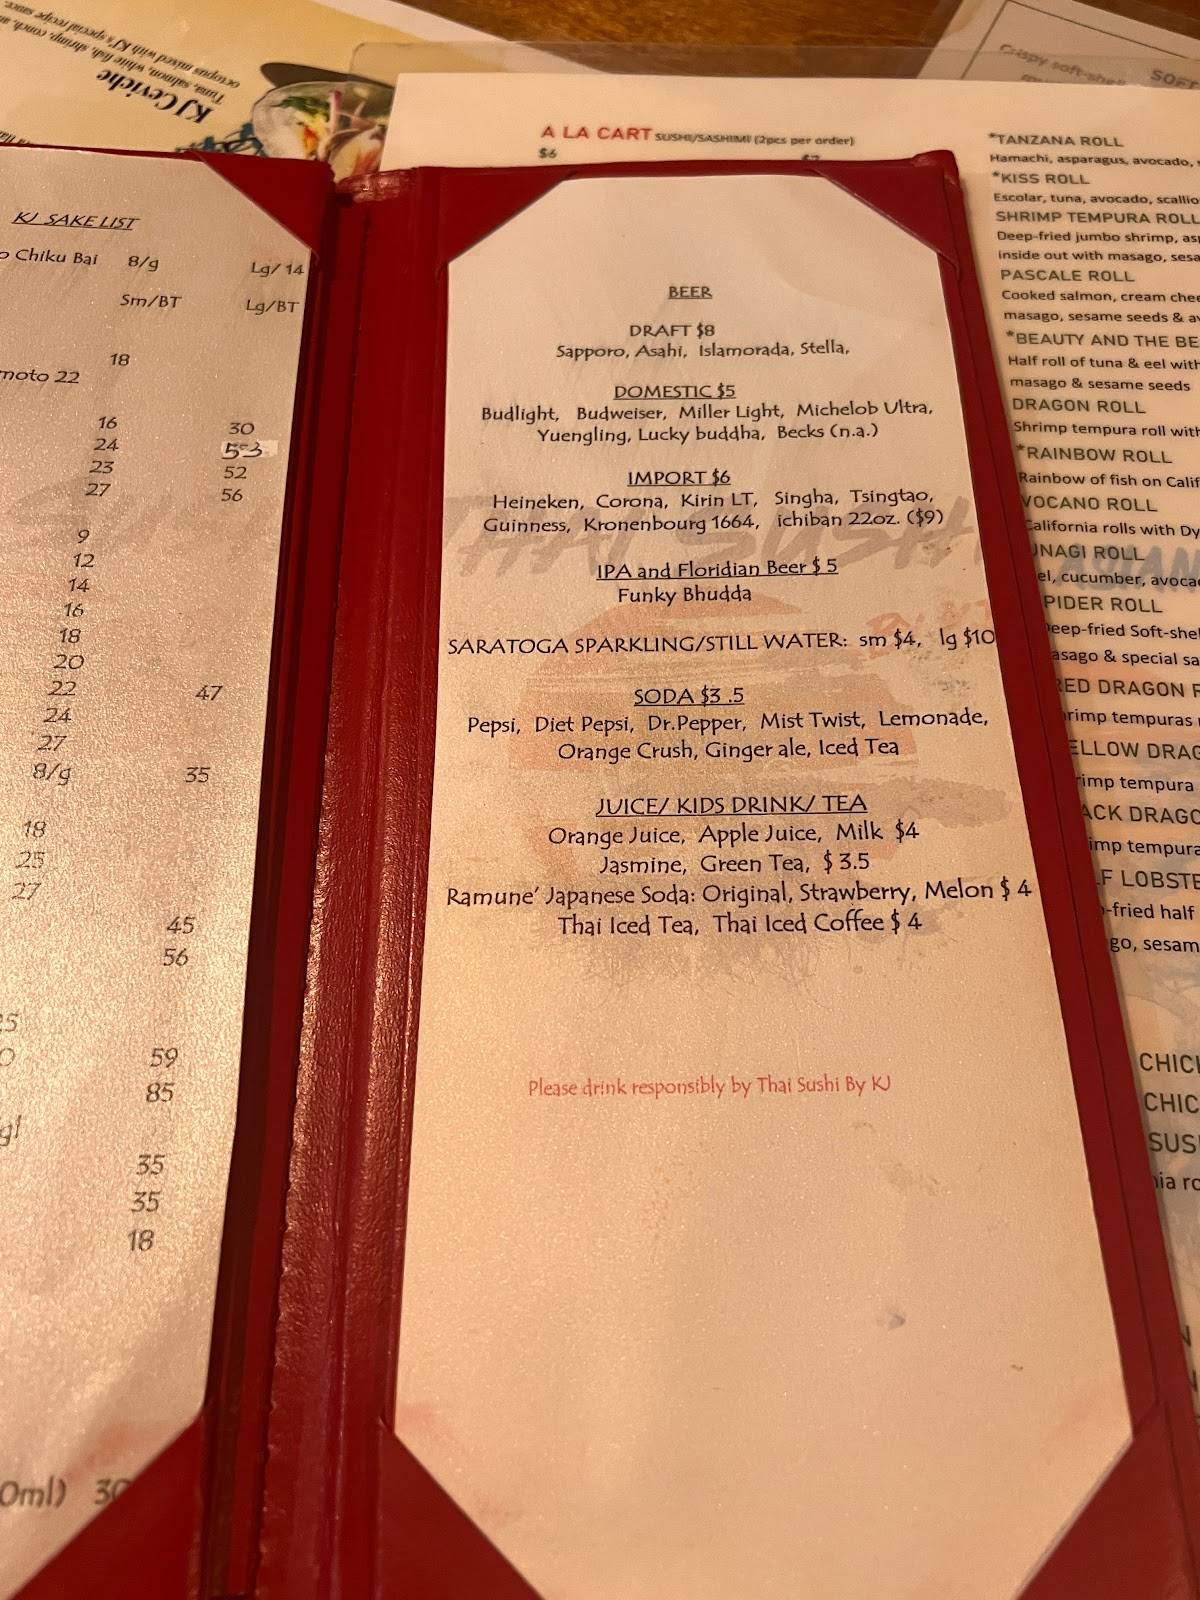 KJ Ceviche
Tuna, salmon, white fish, shrimp, conch,
octopus mixed with KJ's special recipe sauce
Crispy soft-shell
SOFT
A LA CART SUSHI/SASHIMI (2pcs per order)
$6 $7
KJ SAKE LIST
Chiku Bai 8/g Lg/ 14
Sm/BT Lg/BT
18
moto 22
16 30
24 53
23 52
27 56
9
12
14
16
18
20
22 47
24
27
8/g 35
18
25
27
45
56
59
85
gl
35
35
18
0ml) 30
BEER
DRAFT $8
Sapporo, Asahi, Islamorada, Stella,
DOMESTIC $5
Budlight, Budweiser, Miller Light, Michelob Ultra,
Yuengling, Lucky buddha, Becks (n.a.)
IMPORT $6
Heineken, Corona, Kirin LT, Singha, Tsingtao,
Guinness, Kronenbourg 1664, ichiban 22oz. ($9)
THAI SUSHI
IPA and Floridian Beer $ 5
Funky Bhudda
SARATOGA SPARKLING/STILL WATER: sm $4, lg $10
SODA $3 .5
Pepsi, Diet Pepsi, Dr.Pepper, Mist Twist, Lemonade,
Orange Crush, Ginger ale, Iced Tea
JUICE/ KIDS DRINK/ TEA
Orange Juice, Apple Juice, Milk $4
Jasmine, Green Tea, $ 3.5
Ramune' Japanese Soda: Original, Strawberry, Melon $ 4
Thai Iced Tea, Thai Iced Coffee $ 4
Please drink responsibly by Thai Sushi By KJ
*TANZANA ROLL
Hamachi, asparagus, avocado,
*KISS ROLL
Escolar, tuna, avocado, scallio
SHRIMP TEMPURA ROLL
Deep-fried jumbo shrimp, asp
inside out with masago, sesa
PASCALE ROLL
Cooked salmon, cream chee
masago, sesame seeds & av
*BEAUTY AND THE BE
Half roll of tuna & eel with
masago & sesame seeds
DRAGON ROLL
Shrimp tempura roll with
*RAINBOW ROLL
Rainbow of fish on Calif
VOCANO ROLL
California rolls with Dy
UNAGI ROLL
el, cucumber, avoca
PIDER ROLL
eep-fried Soft-shel
asago & special sa
RED DRAGON R
rimp tempuras
ELLOW DRAG
rimp tempura
ACK DRAGO
imp tempura
LF LOBSTE
-fried half
go, sesam
CHICK
CHIC
SUS
nia ro